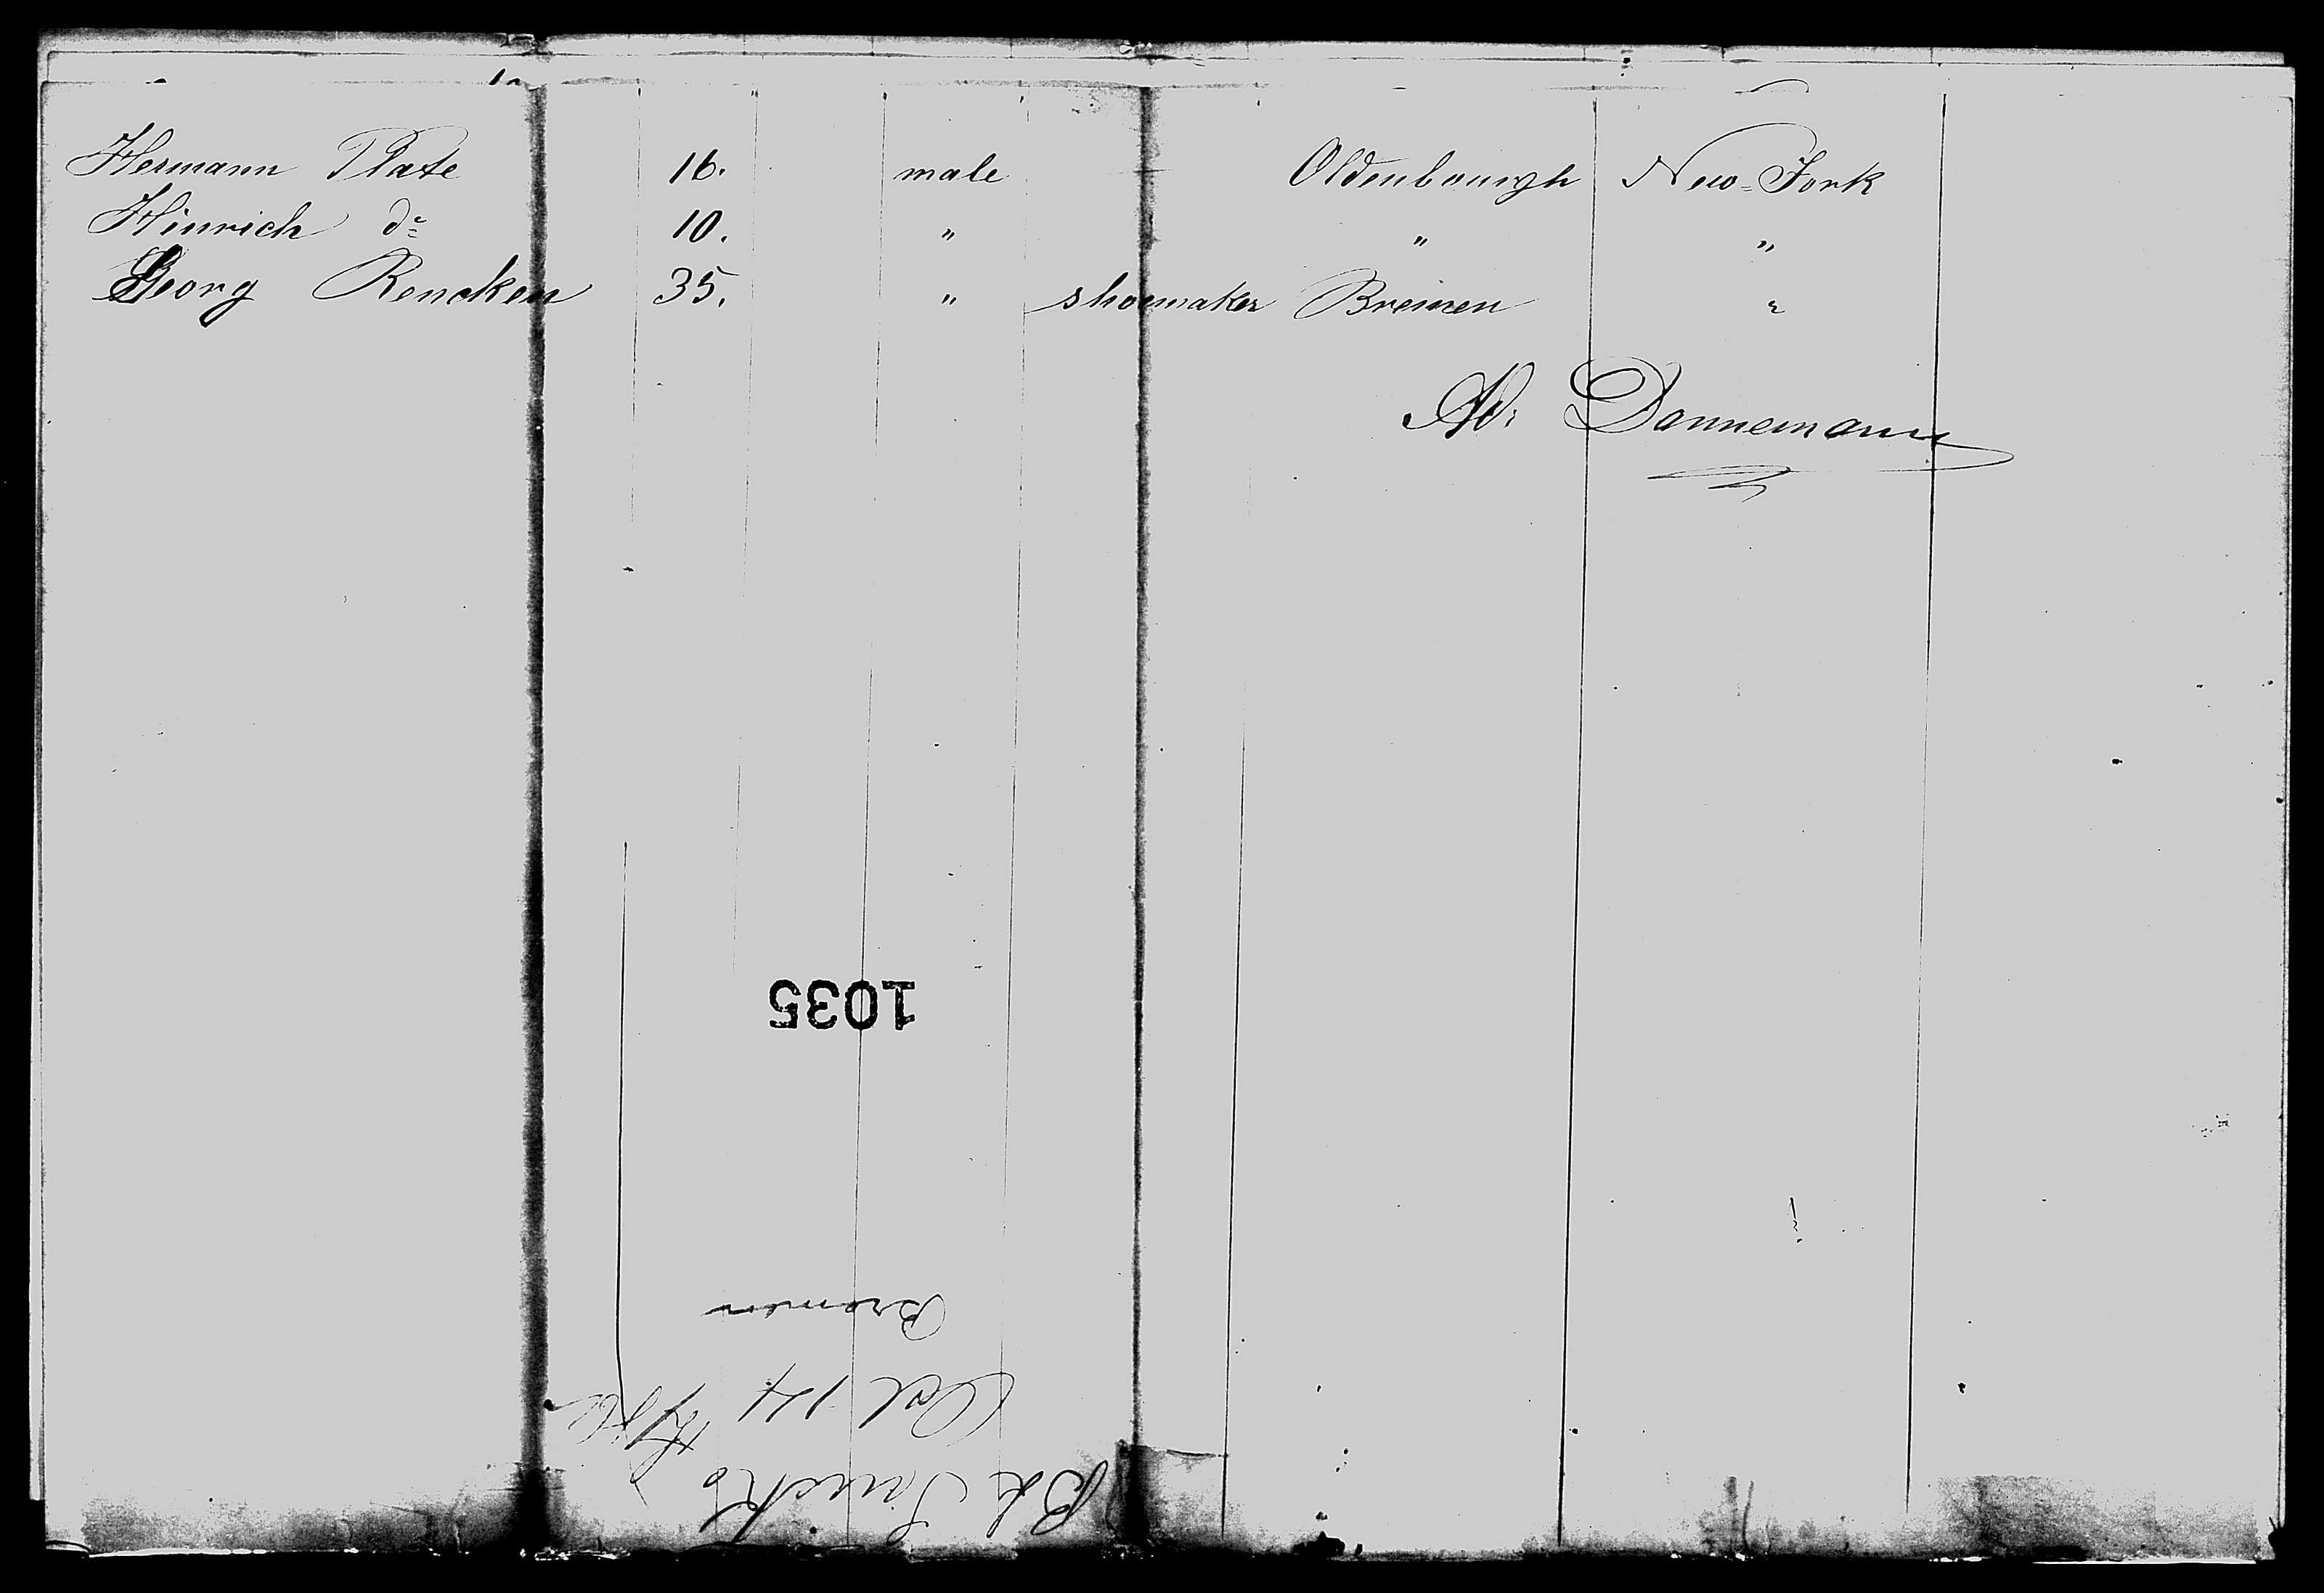 Hermann Plate 16. male Oldenbourgh New-York
Hinrich do 10. " " "
Georg Rencken 35. " shoemaker Bremen "
Ad. Dannemann
1035
Bremen
Oct 14
Bk